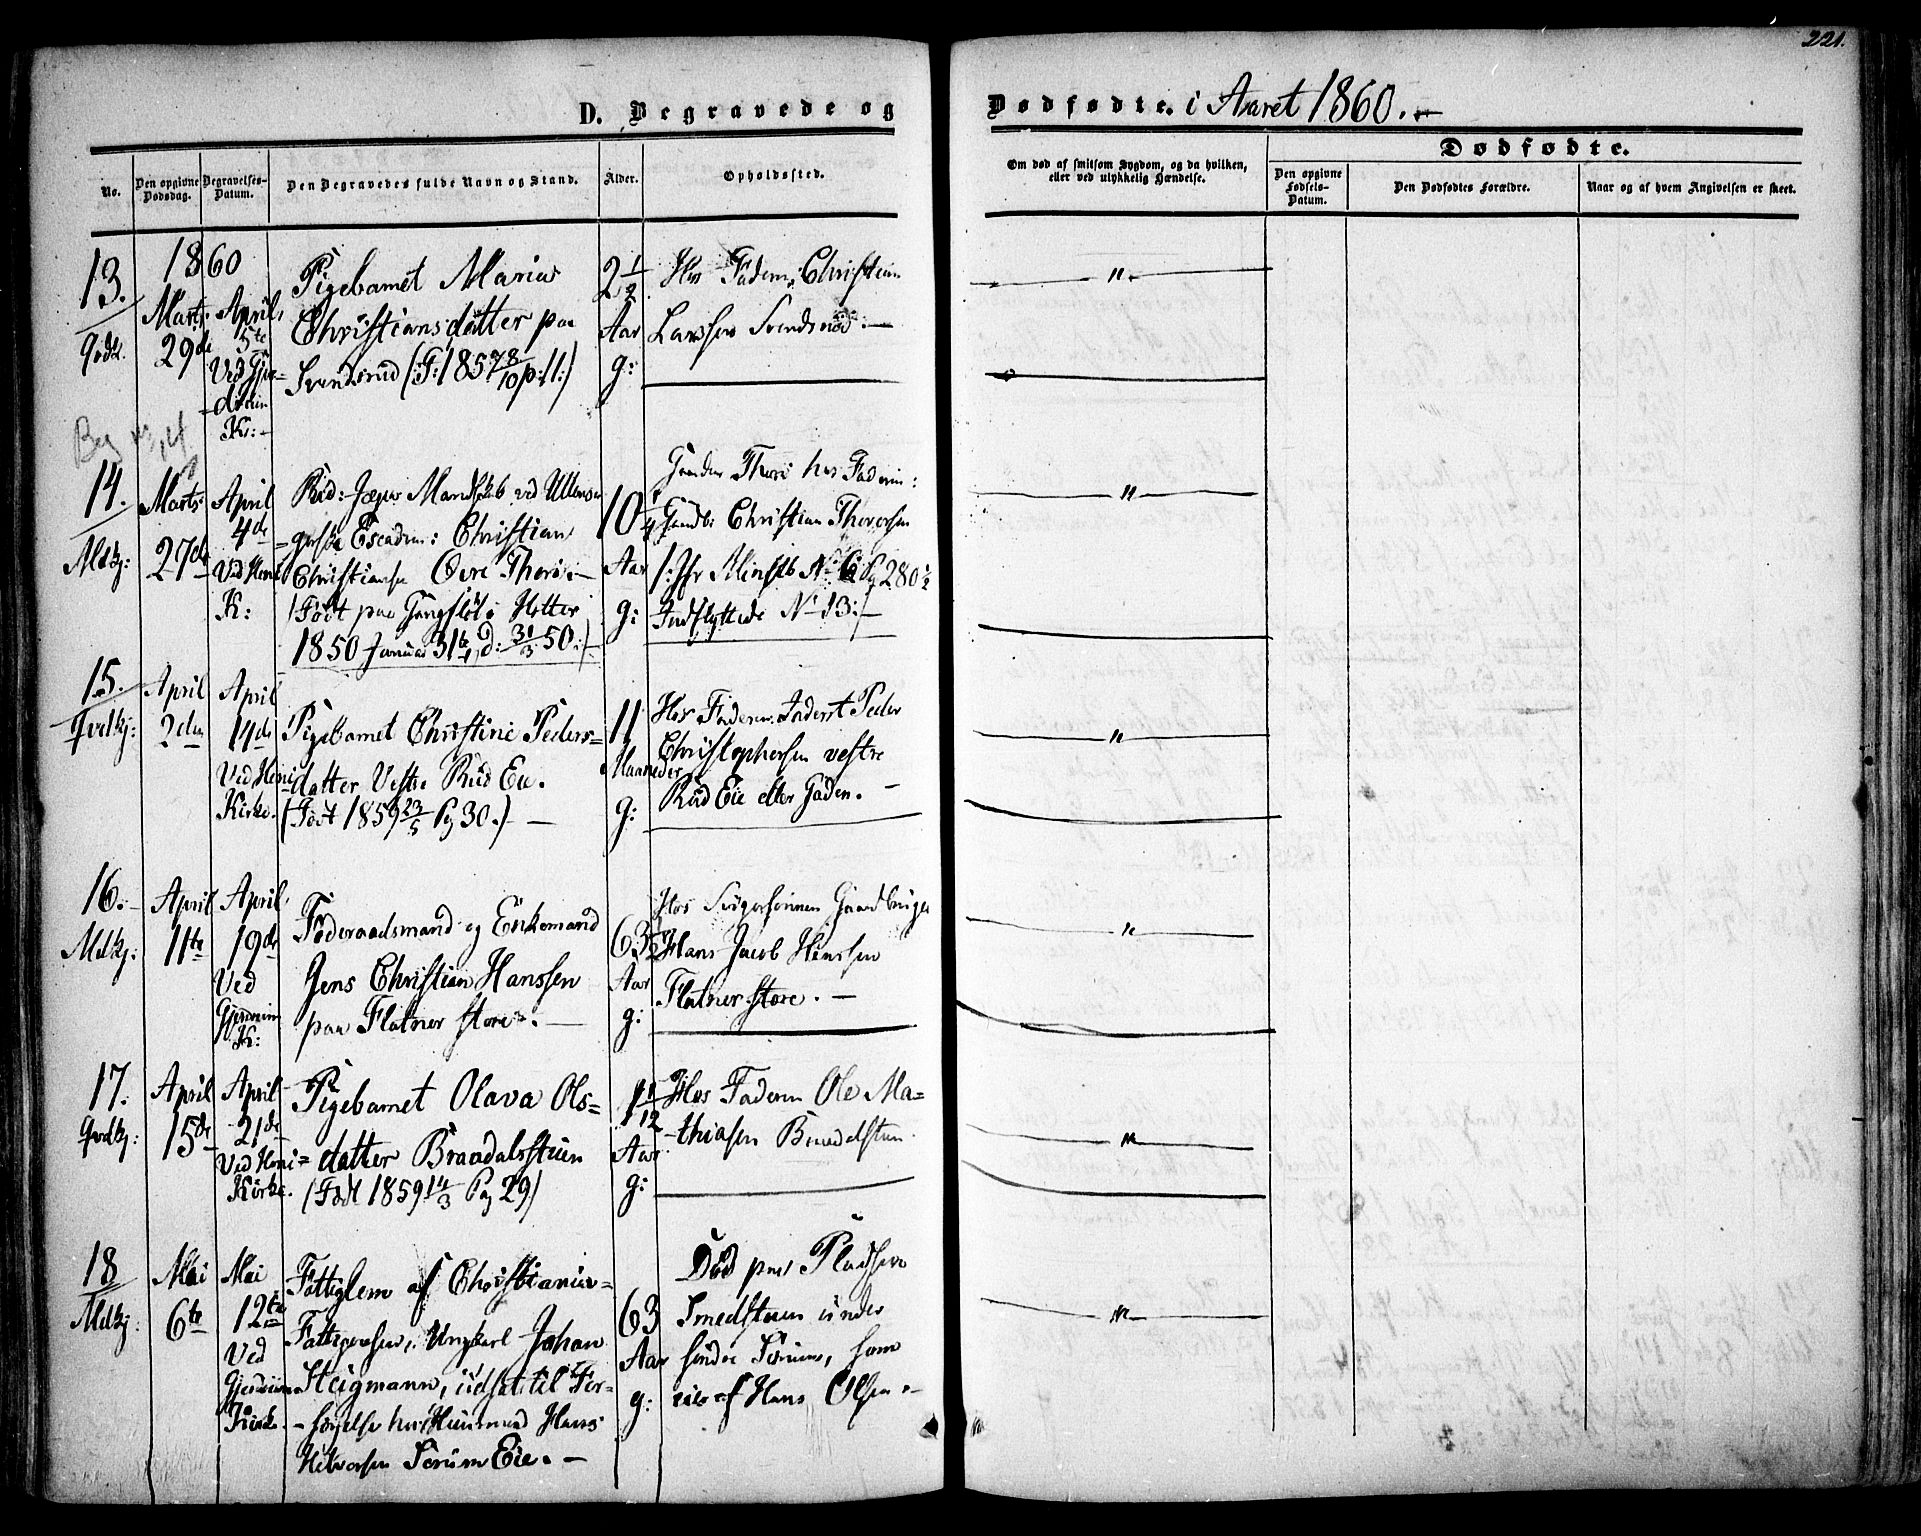 221.
D. Begravede og
Dødfødte. i Aaret 1860.
No.
Den opgivne Dødsdag.
Begravelses-Datum.
Den Begravedes fulde Navn og Stand.
Alder.
Opholdssted.
Om død af smitsom Sygdom, og da hvilken,
eller ved ulykkelig Hændelse.
Dødfødte.
Den opgivne Fødsels-Datum.
Den Dødfødtes Forældre.
Naar og af hvem Angivelsen er skeet.
1860
13.
Marts
29de
April
5te
Ved
K:
Pigebarnet Maria
Christiansdatter paa
Svendsrud (F: 1857 8/10 p: 11:)
2 1/2
Aar
g:
Hos Faderen Christian
Larssen Svendsrud.
"
Beg
14.
Mdkj:
Marts
27de
April
4de
Ved
K:
Rid: Jæger Mandskab ved Ullens
Escadron: Christian
Christiansen Øvre Thori
(Født paa
1850 Januar 31te, d: 31/3 50:)
10
Aar
g:
Thori hos Faderen:
Christian Thoresen
No 6 Pag 280 1/2
Indflyttede No 13:)
"
15.
Qvdkj:
April
2den
April
14de
Ved Heni
Kirke.
Pigebarnet Christine Peders=
datter Vestre Rud Eie.
(Født 1859 23/5 Pag 30.)
11
Maaneder
g:
Hos Faderen Inderst Peder
Christophersen vestre
Rud Eie eller Gaden.
"
16.
Mdkj:
April
11te
April
19de
Ved
Gjerdrum
K:
Føderaadsmand og Enkemand
Jens Christian Hanssen
paa Flatner store.
63
Aar
g:
Hos Svigersønnen Gaardbruger
Hans Jacob Henssen
Flatner store.
"
17.
Qvdkj:
April
15de
April
21de
Ved Heni=
Kirke.
Pigebarnet Olava Ols=
datter Braadalsstuen
(Født 1859 14/3 Pag 29)
1 1/12
Aar
g:
Hos Faderen Ole Ma=
thiasen
"
18
Mdkj:
Mai
6te
Mai
12te
Ved
Gjerdrum
Kirke.
Fattiglem af Christiania=
Ungkarl Johan
Steigmann, udsat til For=
Huusmand Hans
Sørum Eie.
63
Aar
g:
Død paa Pladsen
Smedstuen under
Søndre Sørum, som
eies af Hans Olsen
"